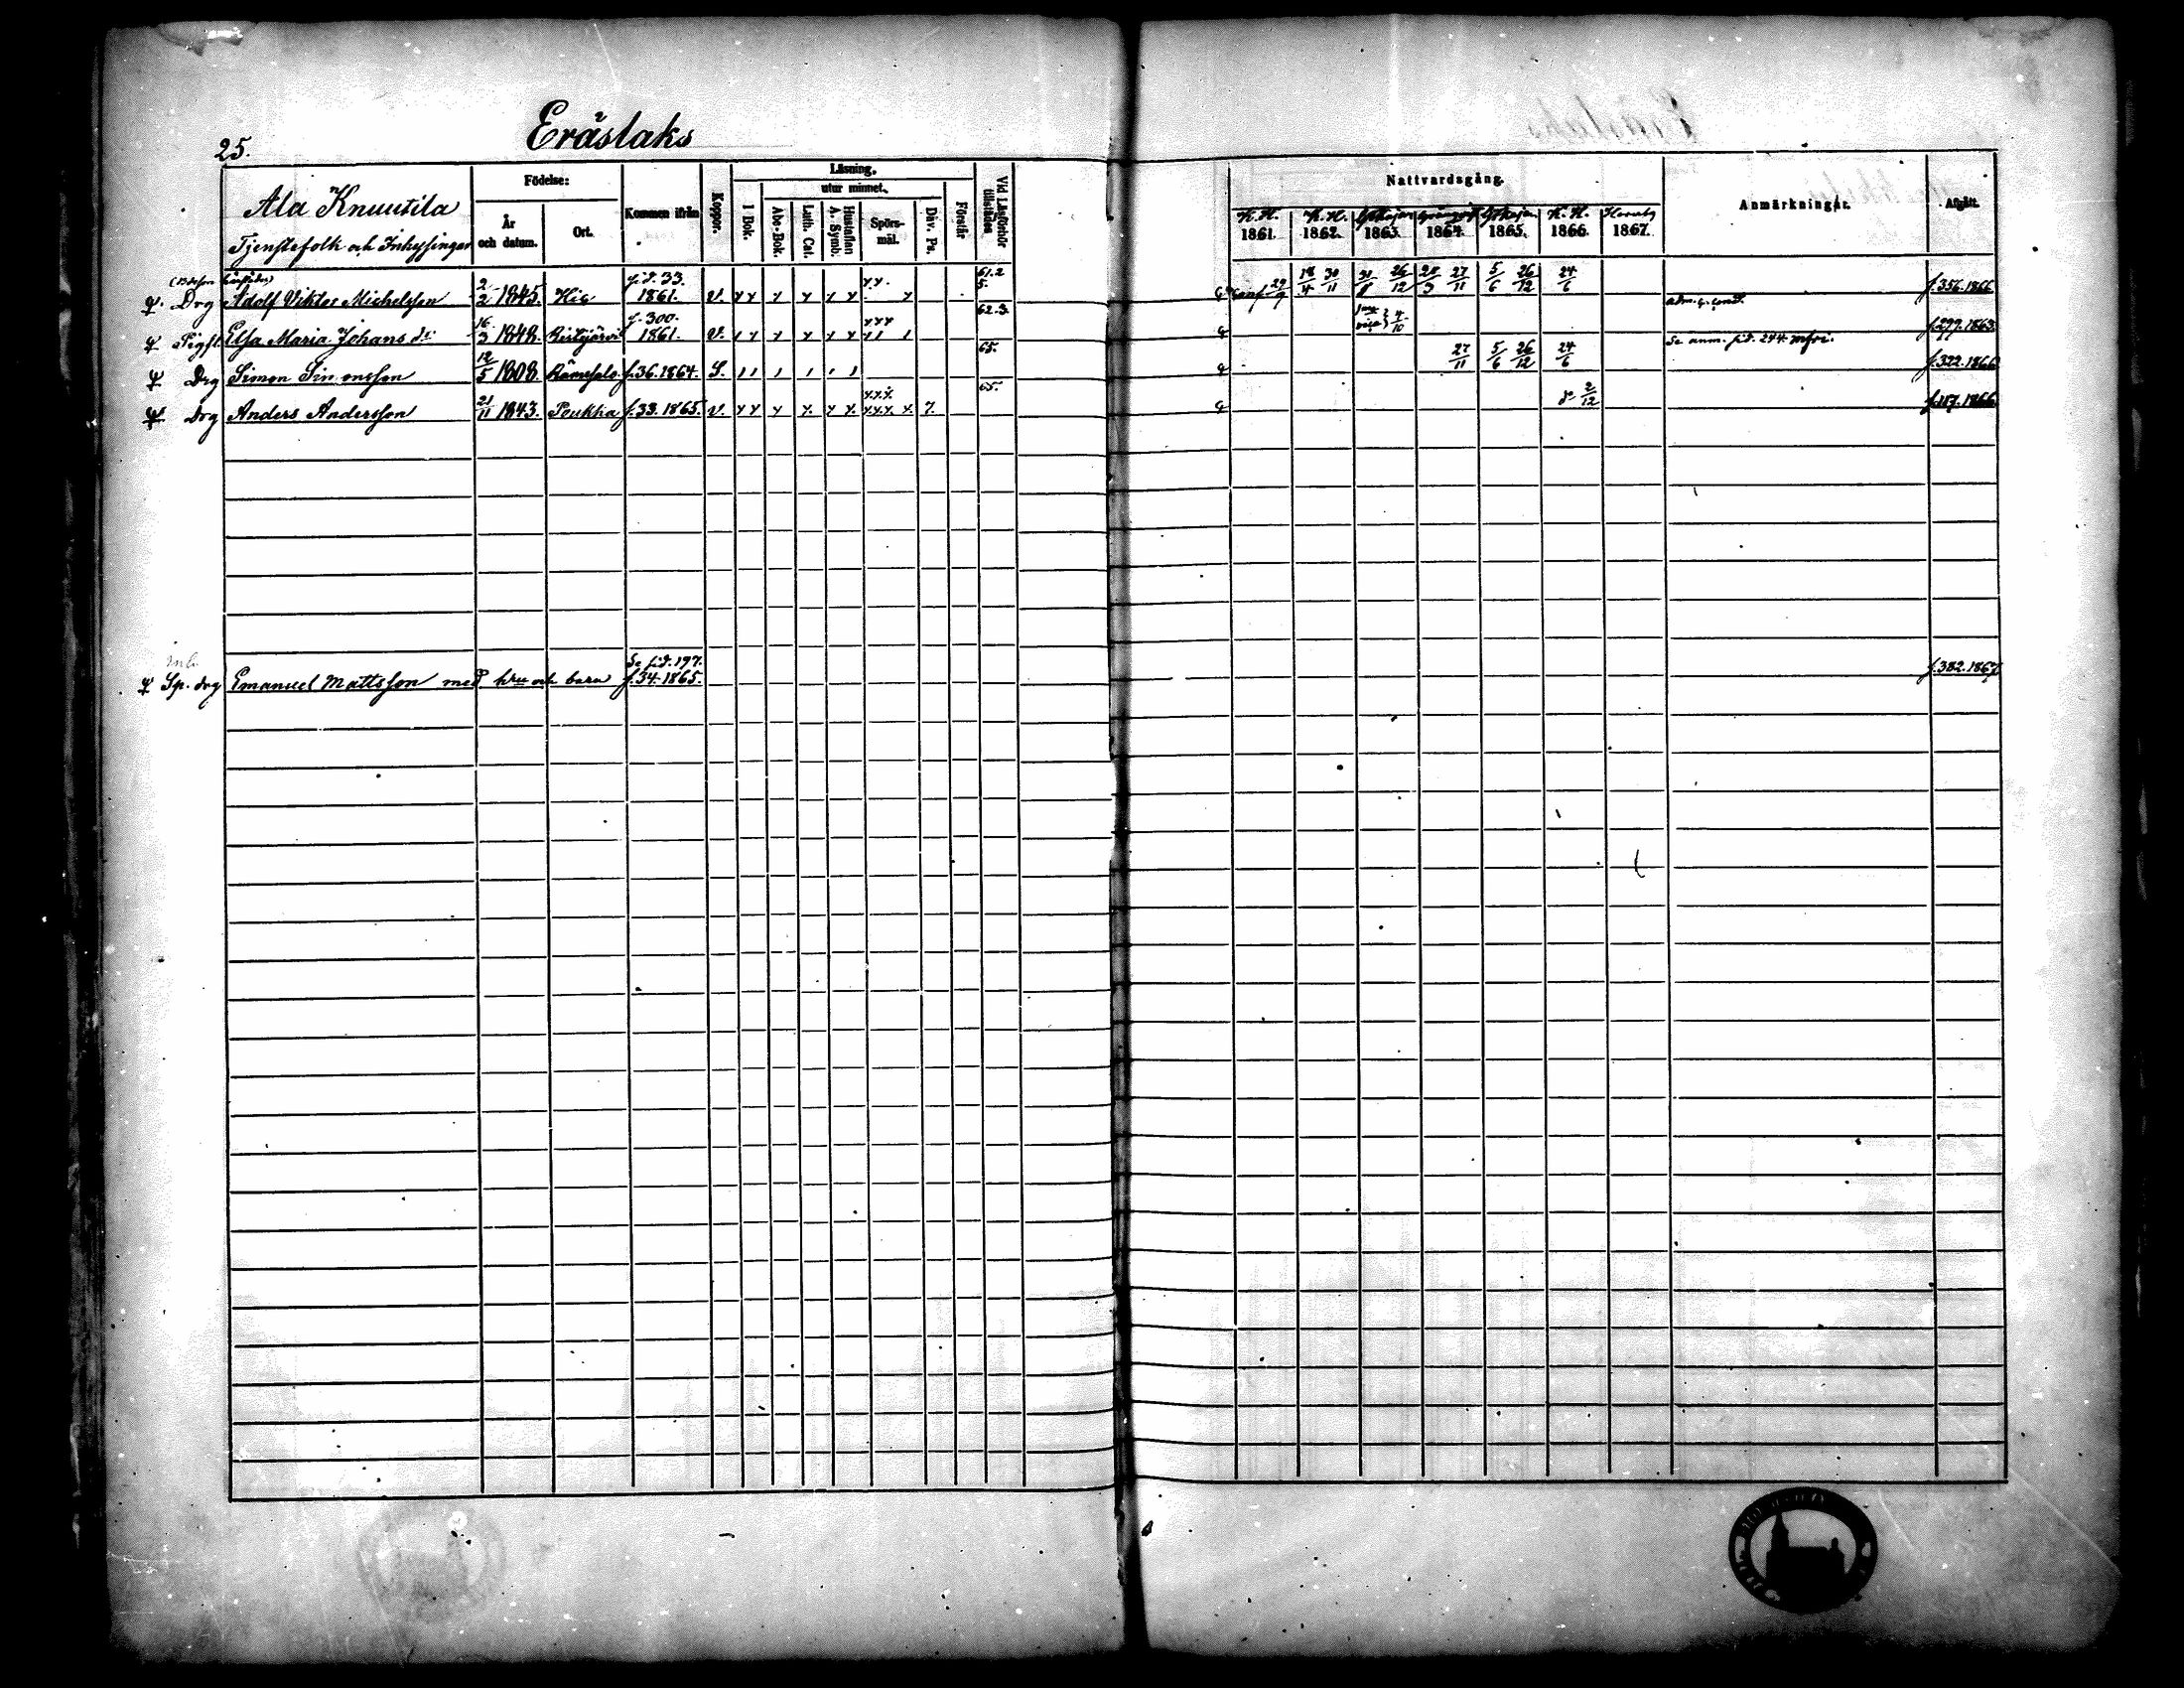 25.
Eräslaks
Ala Knuutila
Tjenstefolk och Inhysingar
Födelse:
År och datum.
Ort.
Kommen ifrån
Koppor.
Läsning,
I Bok.
utur minnet.
Abc-Bok.
Luth. Cat.
Hustaflan A. Symb.
Spörsmål.
Dav. Ps.
Förstår
Vid Läsförhör tillstädes
Nattvardsgång.
K. H. 1861.
K. H. 1862.
1863.
1864.
1865.
K. H. 1866.
1867.
Anmärkningar.
Afgått.
Drg Adolf Viktor Michelsson 2/2 1845. Hie sid. 33. 1861. v. 61.2 5. 29/9 18/4 30/11 26/12 27/11 5/6 26/12 24/6 f. 356. 1866
Elsa Maria Johans dr 16/3 1848. f. 300. 1861. v. 62.3. 4/10 Se anm. sid. 244. f. 277. 1863.
Drg Simon Simonsson 12/5 1808. f. 36. 1864. S. 65. 27/11 5/6 26/12 24/6 f. 322. 1866
Drg Anders Andersson 21/11 1843. Peukha f. 33. 1865. v. 7. 65. 2/12 1866
Sp. drg Emanuel Mattsson med hru och barn Se sid. 197. f. 34. 1865. f. 382. 1867